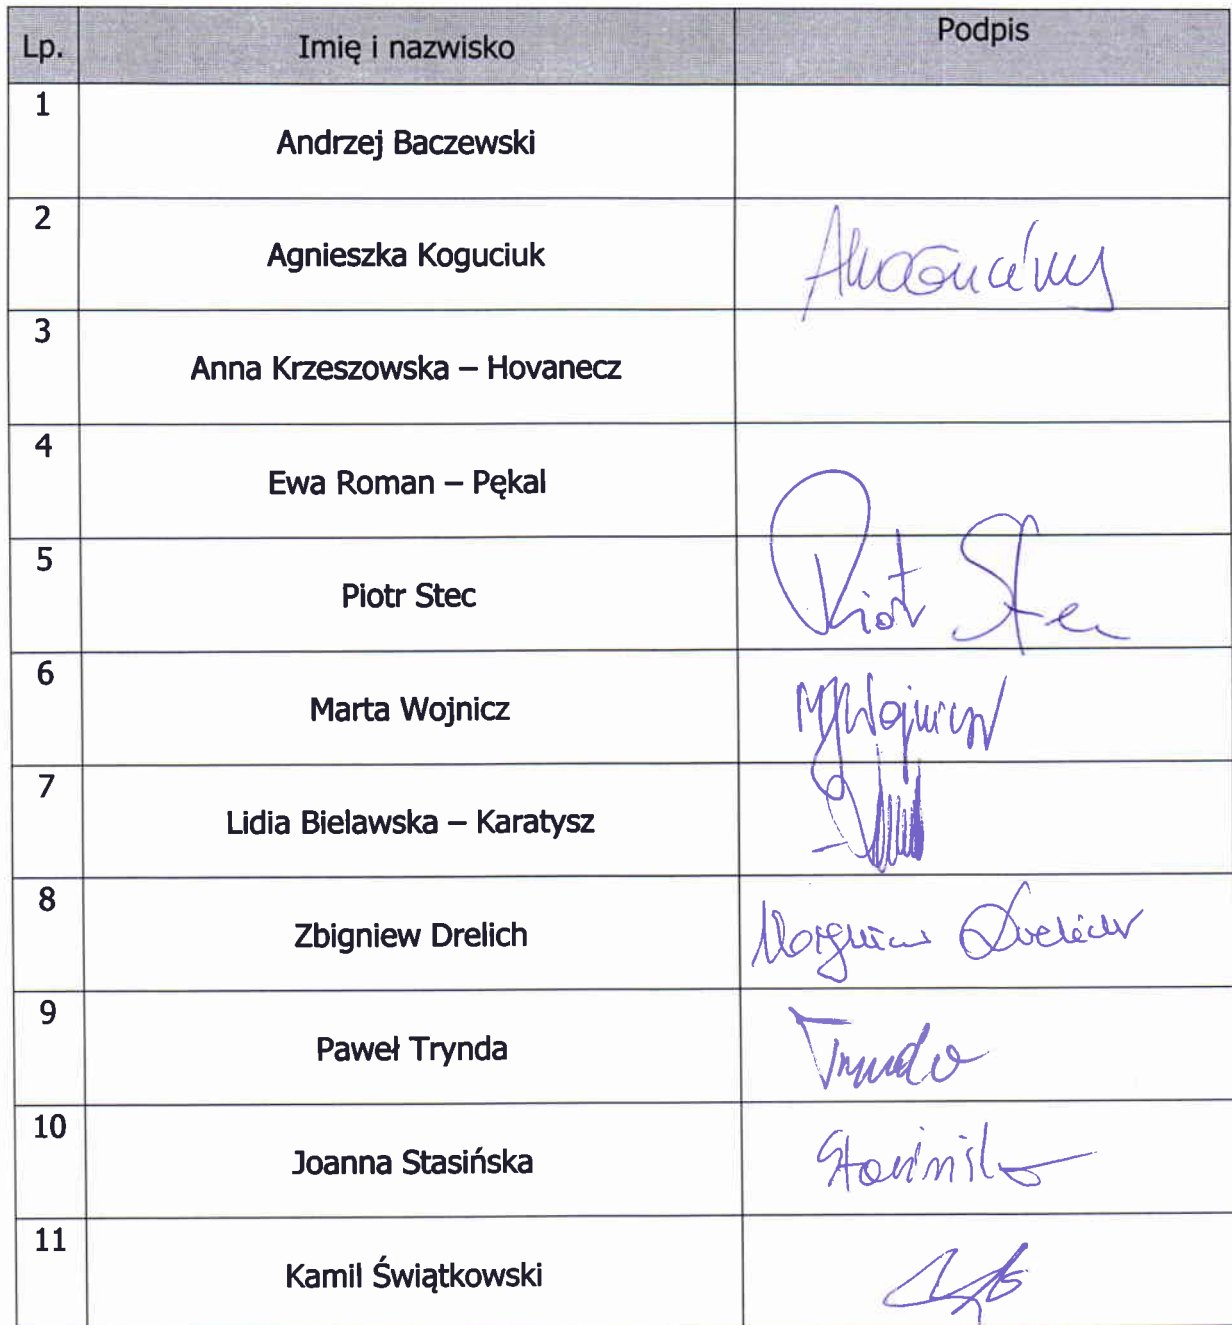 Lp. Imię i nazwisko Podpis
1 Andrzej Baczewski
2 Agnieszka Koguciuk
3 Anna Krzeszowska – Hovanecz
4 Ewa Roman – Pękal
5 Piotr Stec Piotr Stec
6 Marta Wojnicz MWojnicz
7 Lidia Bielawska – Karatysz
8 Zbigniew Drelich Zbigniew Drelich
9 Paweł Trynda Trynda
10 Joanna Stasińska
11 Kamil Świątkowski